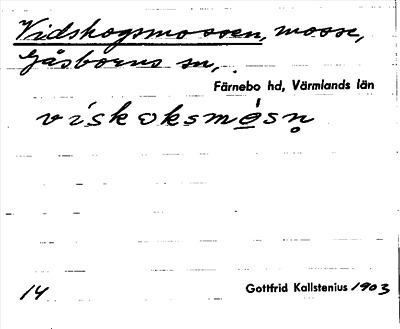 Vidskogsmossen, mosse,
Gåsborns sn,
Färnebo hd, Värmlands län
vískoksmǻsn̥
14
Gottfrid Kallstenius 1903